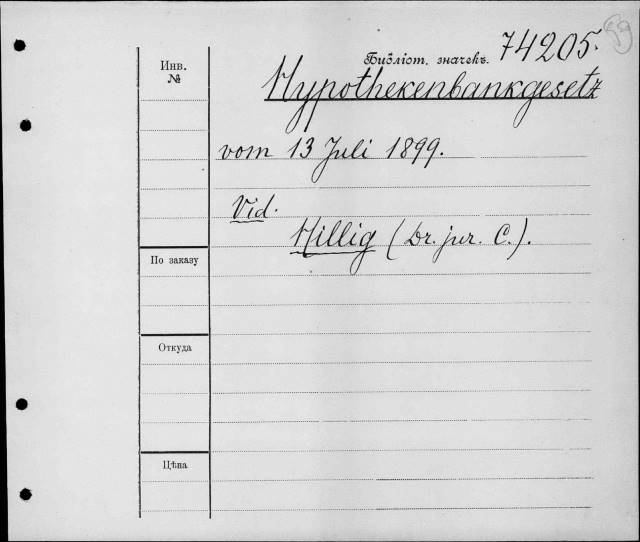 59
Инв. №
Библіот. значекъ. 74205.
Hypothekenbankgesetz
vom 13 Juli 1899.
Vid.
Hillig (Dr. jur. C.).
По заказу
Откуда
Цѣна